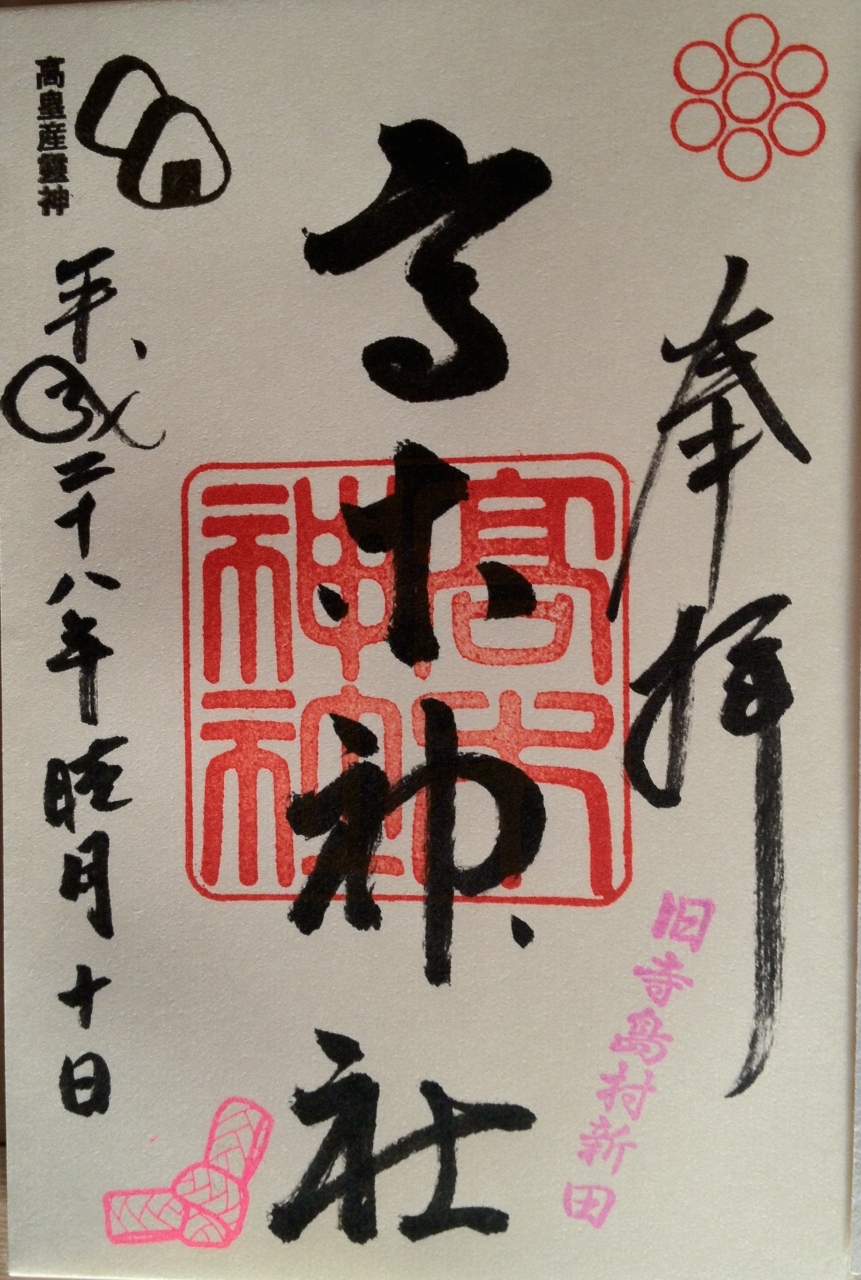 奉拝
旧寺島村新田
高木神社
高木
神社
高皇産靈神
平成二十八年睦月十日